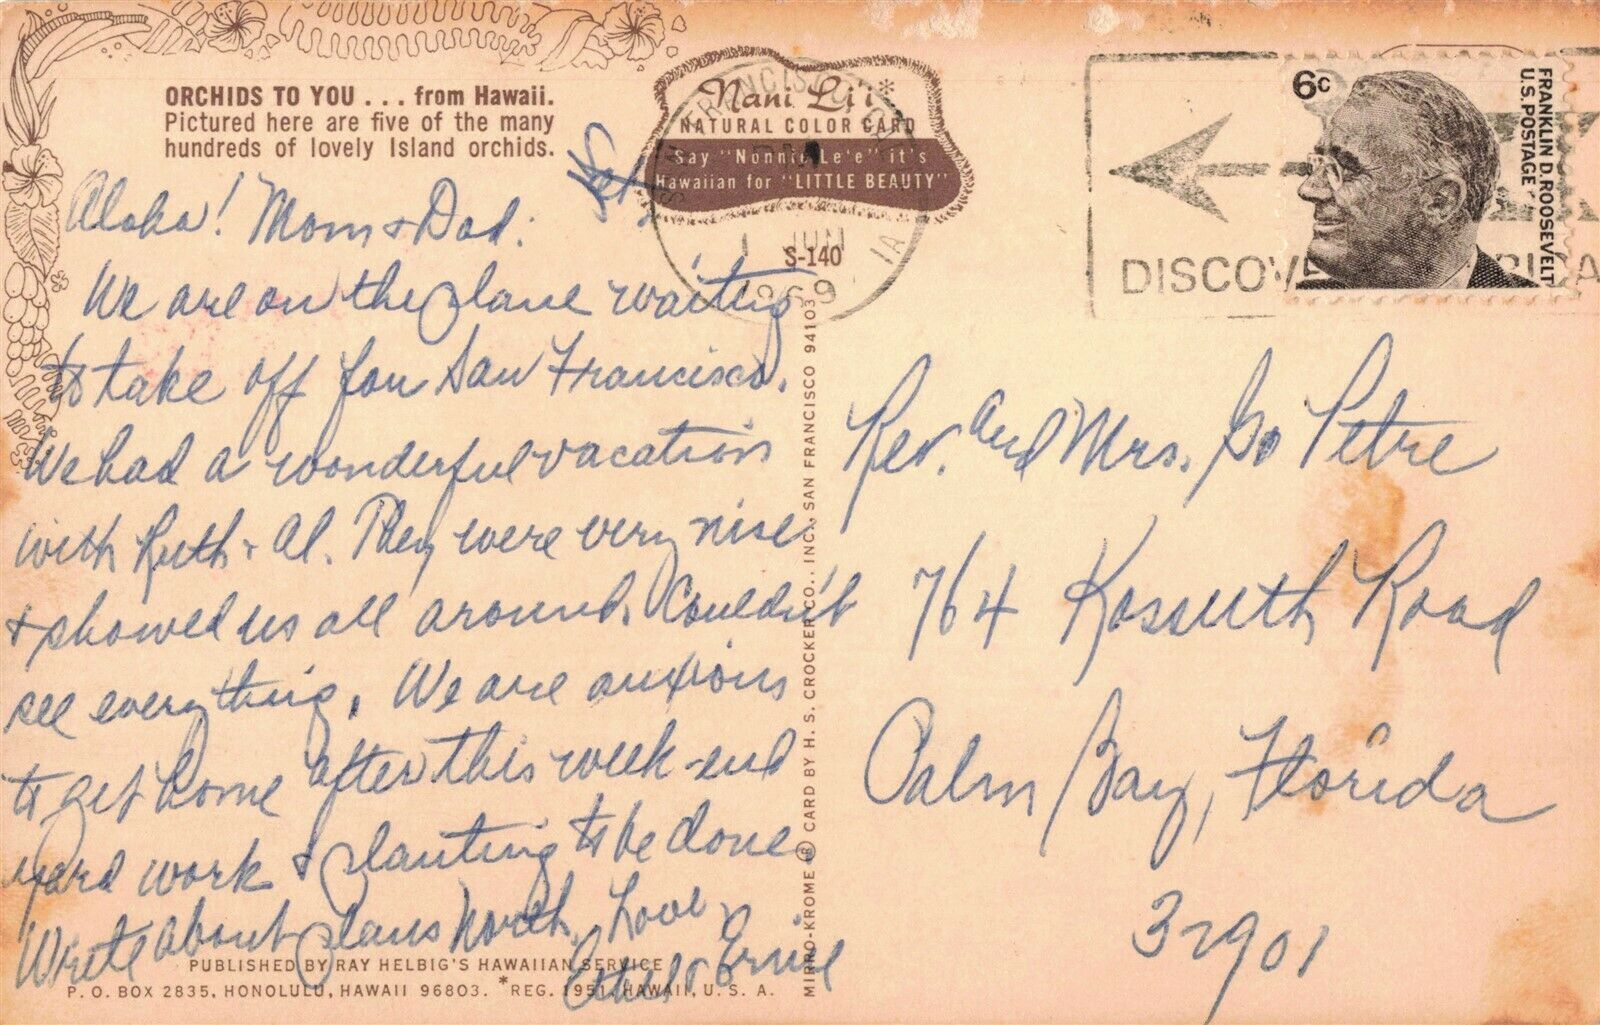 ORCHIDS TO YOU . . . from Hawaii.
Pictured here are five of the many
hundreds of lovely Island orchids.
Nani Li'i*
NATURAL COLOR CARD
Say "Nonnie Le'e" it's
Hawaiian for "LITTLE BEAUTY"
S-140
Sat.
Aloha! Mom & Dad:
We are on the plane waiting
to take off for San Francisco.
We had a wonderful vacation
with Ruth & Al. They were very nise
& showed us all around. Couldn't
see everything. We are anxious
to get home after this week-end
yard work & planting to be done
Write about plans North. Love,
Ethel & Ernie
PUBLISHED BY RAY HELBIG'S HAWAIIAN SERVICE
P. O. BOX 2835, HONOLULU, HAWAII 96803. *REG. 1951, HAWAII, U. S. A.
MIRRO-KROME ® CARD BY H. S. CROCKER CO., INC., SAN FRANCISCO 94103
FRANCISCO
1 JUN
1969
DISCOV
6c
FRANKLIN D. ROOSEVELT
U.S. POSTAGE
Rev. and Mrs. Petre
764 Kossuth Road
Palm Bay, Florida
32901